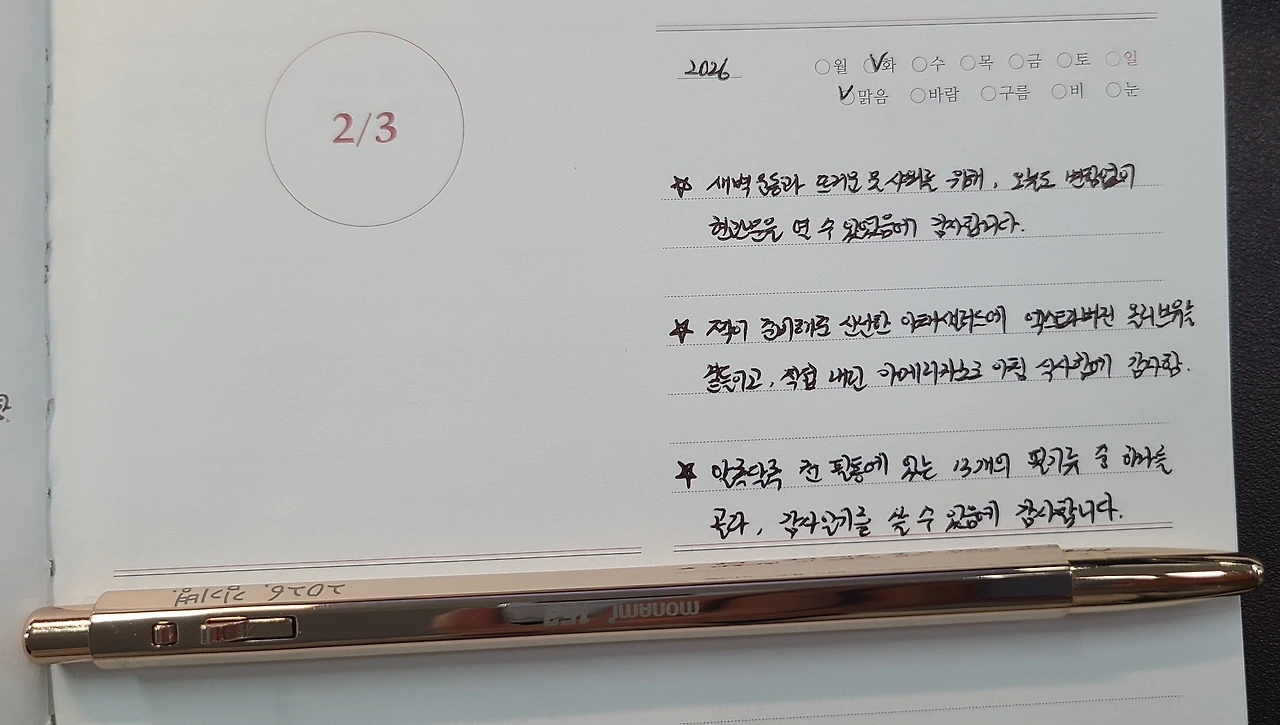 2/3
2026 월 화 수 목 금 토 일
맑음 바람 구름 비 눈
☆ 새벽 운동과 뜨거운 못 샤워를 위해, 오늘도 변함없이
현관문을 연 수 있었음에 감사합니다.
☆ 찍이 준비해준 신선한 야채샐러드에 엑스트라버진 올리브유를
곁들이고, 직접 내린 아메리카노로 아침 식사함에 감사함.
☆ 알록달록 천 필통에 있는 13개의 필기구 중 하나를
골라, 감사일기를 쓸 수 있음에 감사합니다.
monami 153